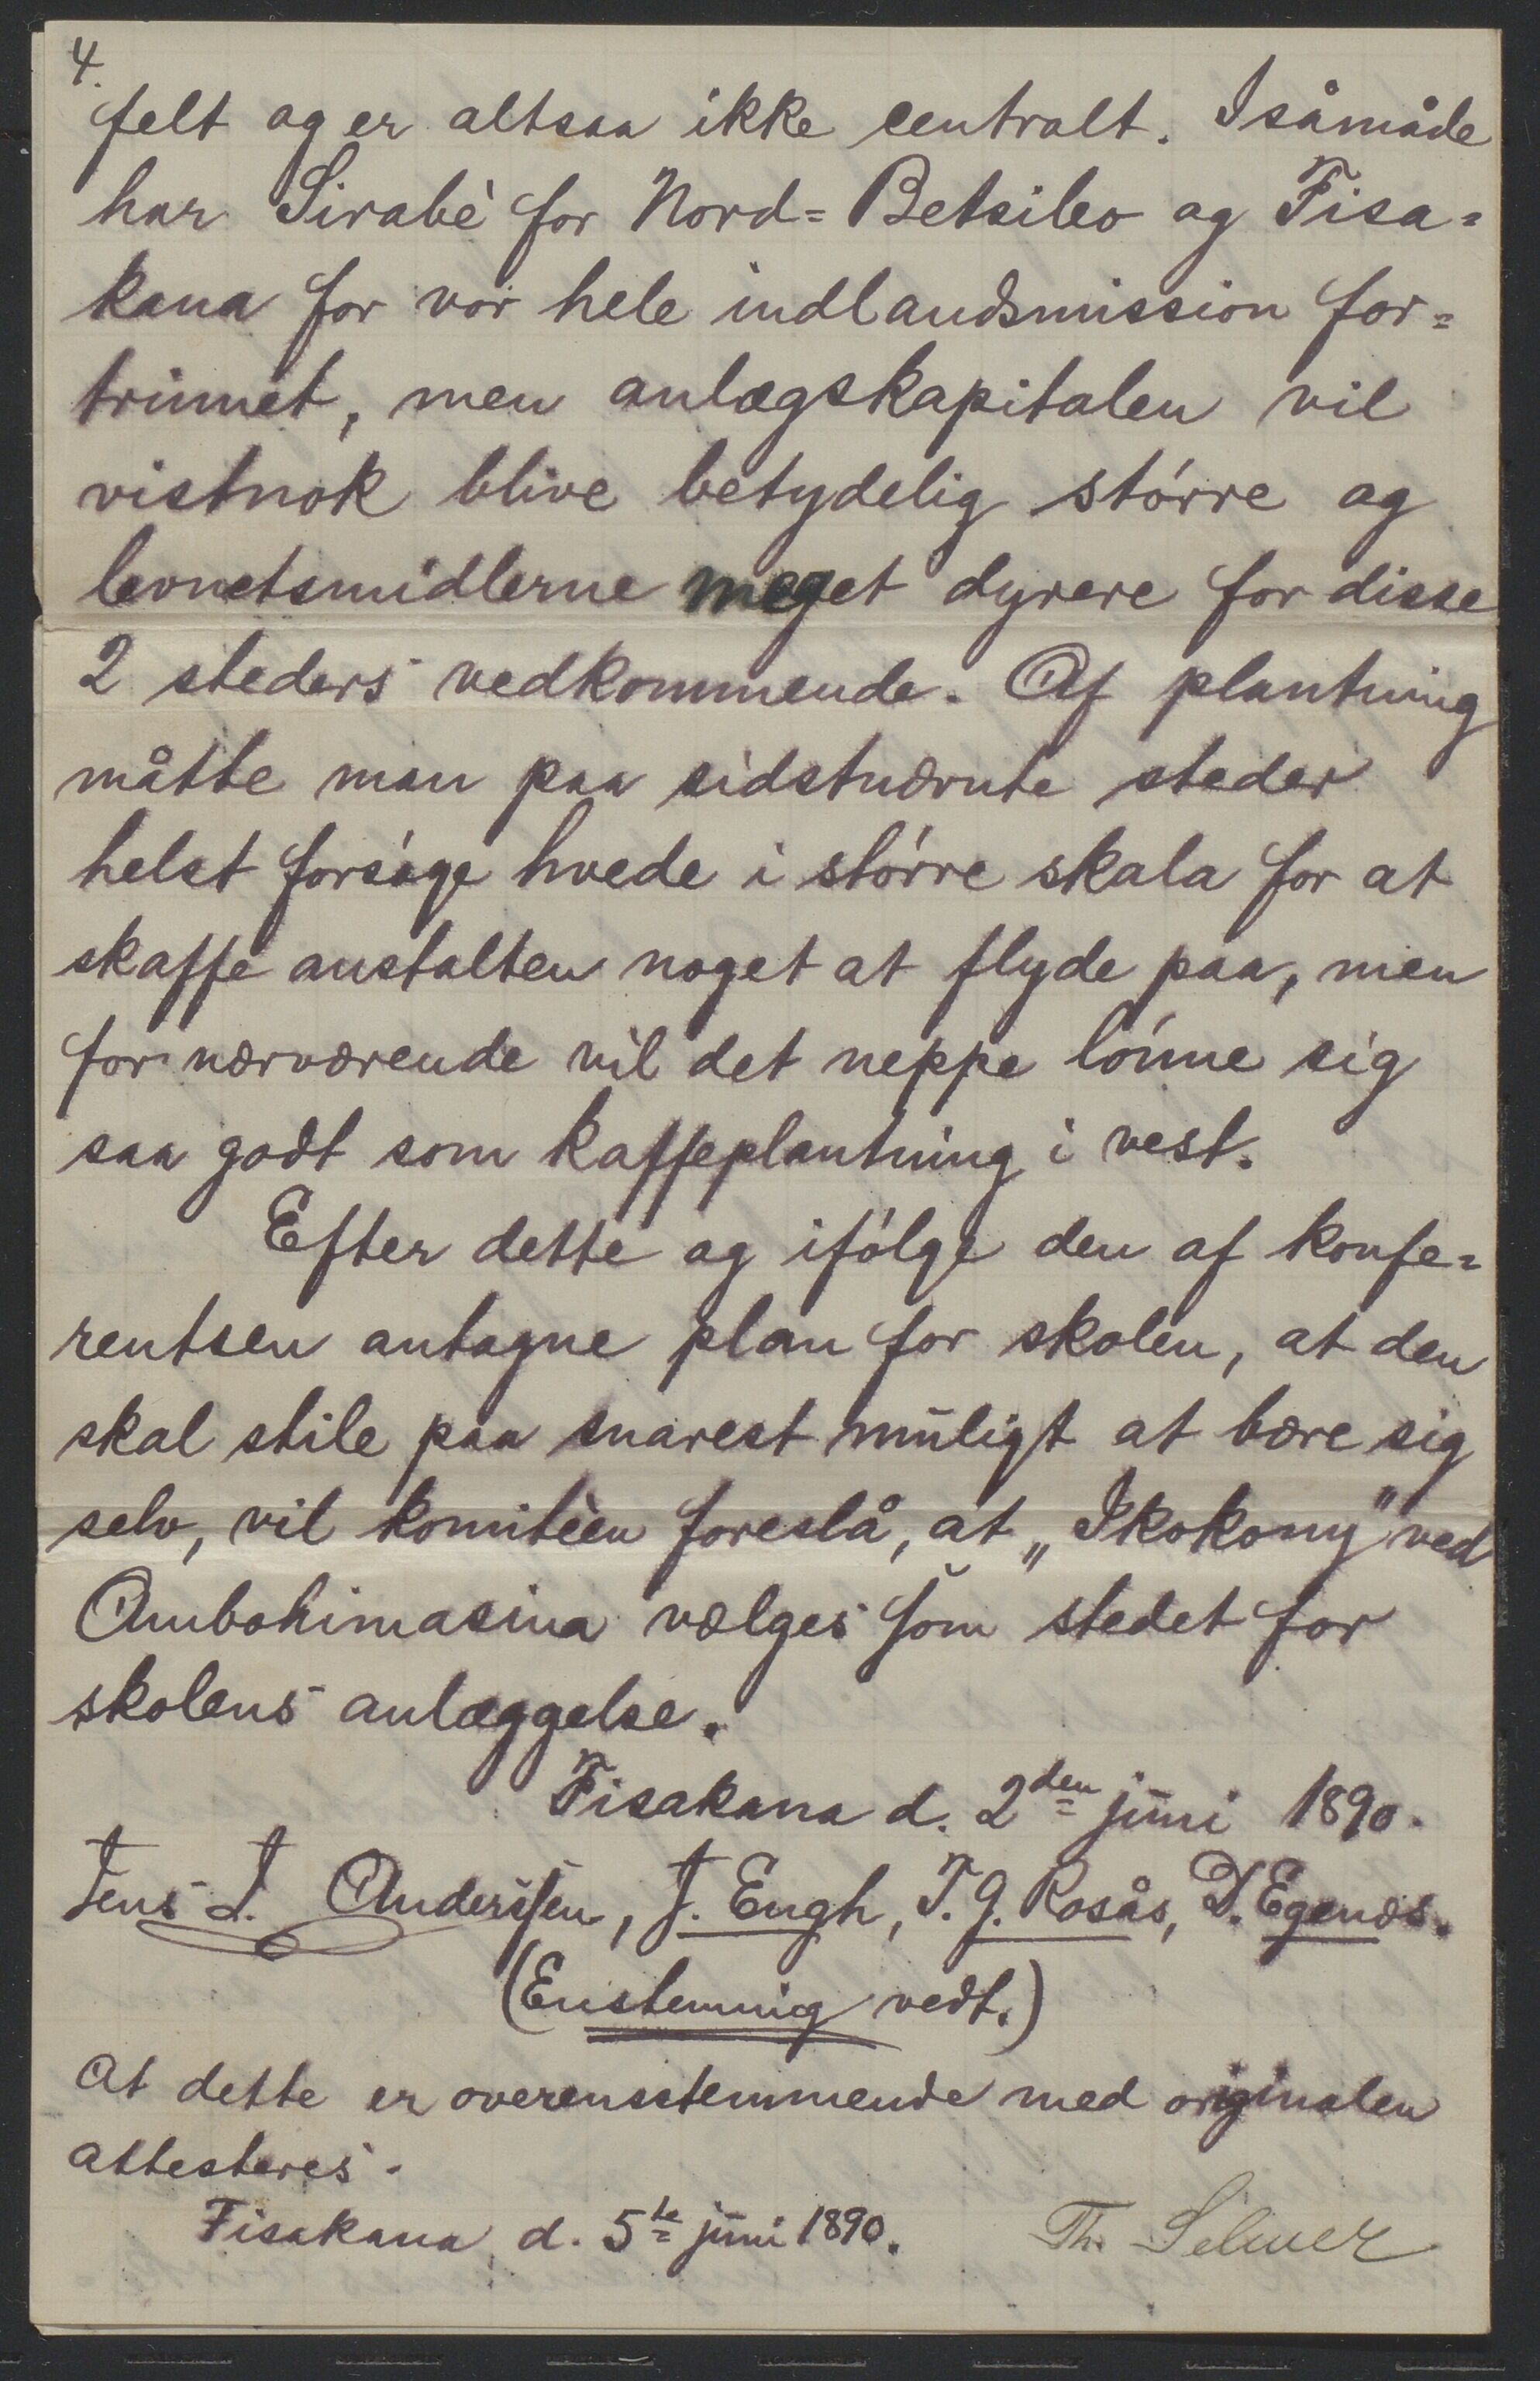 4.
felt og er altsaa ikke centralt. Isåmåde
har Sirabè for Nord=Betsileo og Fisa=
kana for vor hele indlandsmission for=
trinnet, men anlægskapitalen vil
vistnok blive betydelig større og
levnetsmidlerne meget dyrere for disse
2 steders vedkommende. Af plantning
måtte man paa sidstnævnte steder
helst forsøge hvede i større skala for at
skaffe anstalten noget at flyde paa, men
for nærværende vil det neppe lønne sig
saa godt som kaffeplantning i vest.
Efter dette og ifølge den af konfe=
rentsen antagne plan for skolen, at den
skal stile paa snarest muligt at bære sig
selv, vil komitèen foreslå, at „Ikokony” ved
Ambohimasina vælges som stedet for
skolens anlæggelse.
Fisakana d. 2den juni 1890.
Jens L. Anderssen, J. Engh, T. G. Rosås, D. Egenæs.
(Enstemmig vedt.)
At dette er overensstemmende med originalen
attesteres.
Fisakana, d. 5te juni 1890. Th. Selmer